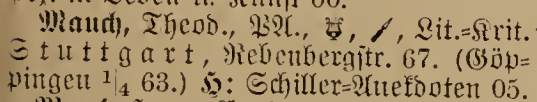 Mauch, Theod., Lit.=Krit.
Stuttgart, Rebenbergstr. 67. (Göp=
pingen 1/4 63.) H: Schiller=Anekdoten 05.